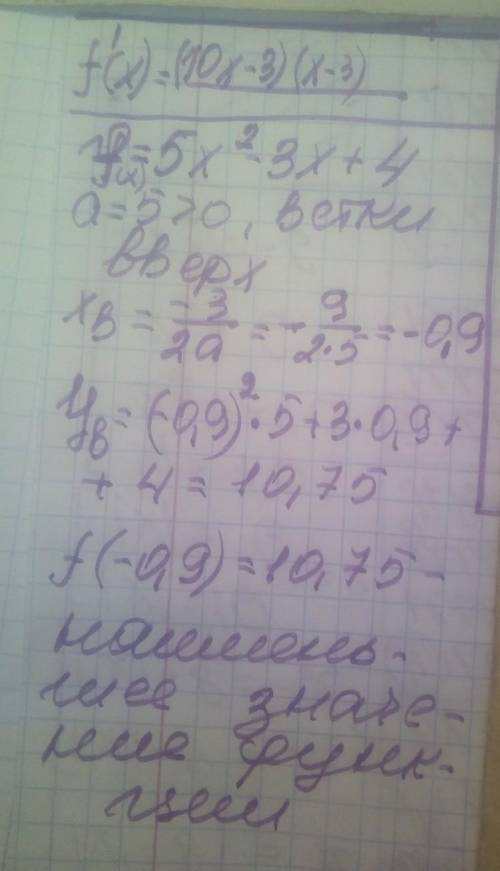 f'(x)=(10x-3)(x-3)
f(x)=5x²-3x+4
a=5>0, ветки
вверх
xв = -3/2a = -9/2·5 = -0,9
yв = (-0,9)²·5+3·0,9+
+4=10,75
f(-0,9)=10,75-
наимень-
шее значе-
ние функ-
ции